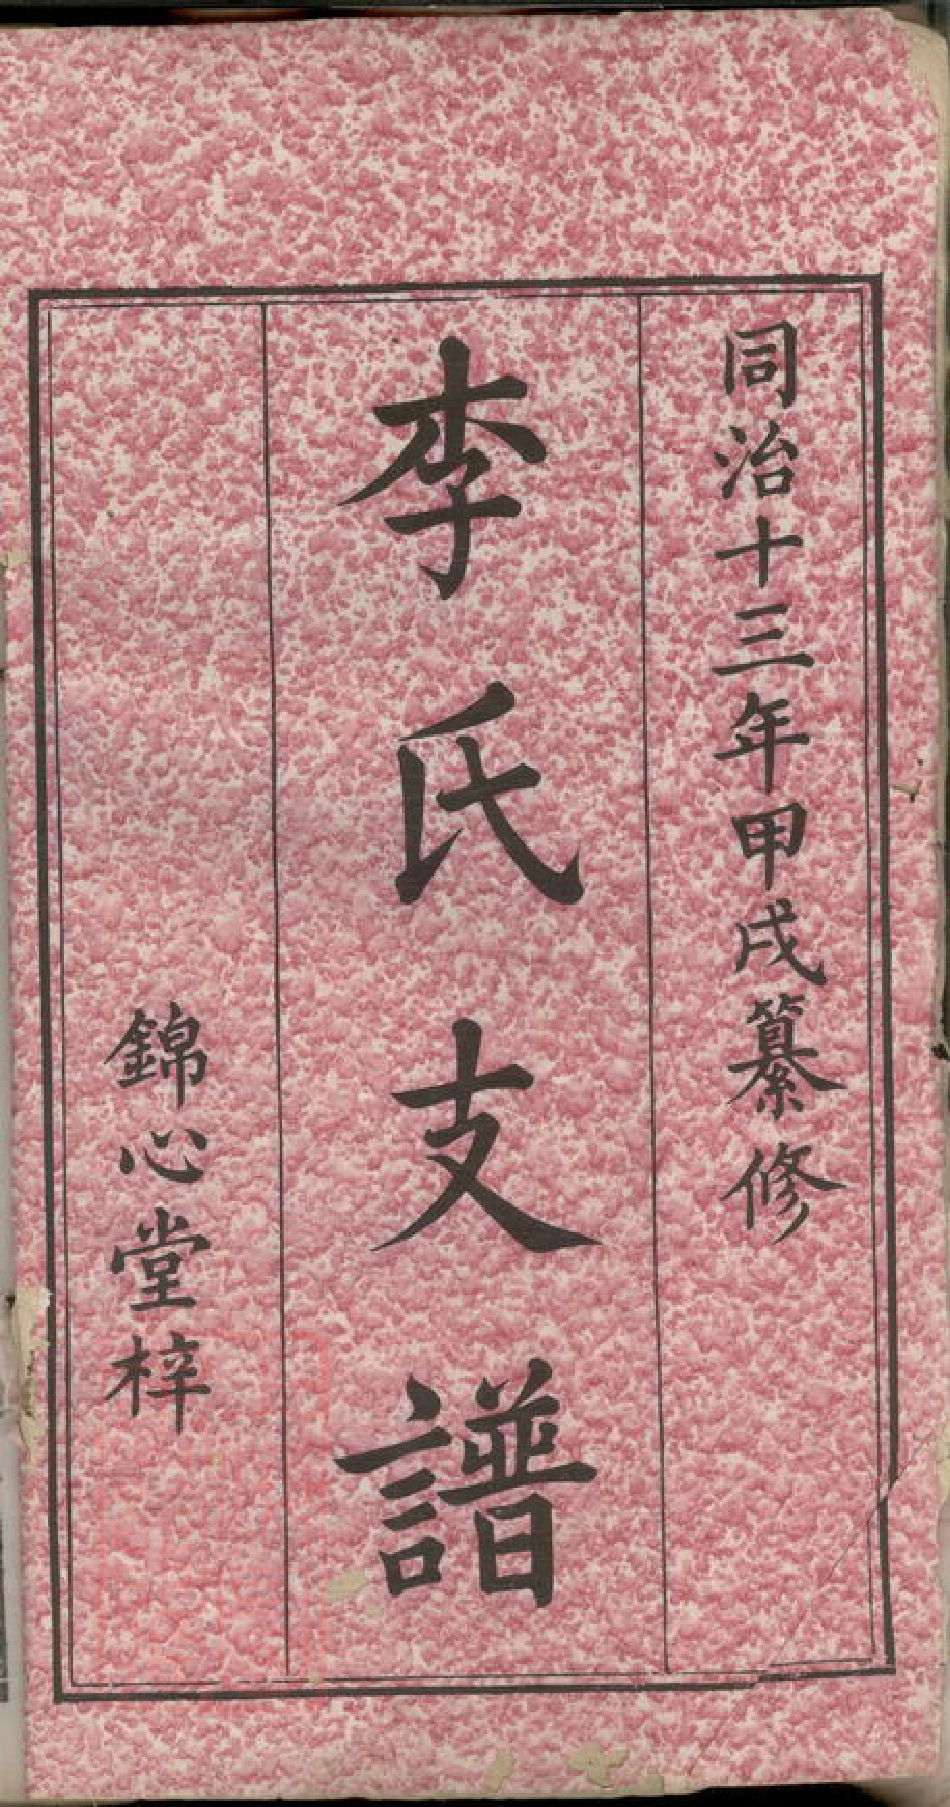 同治十三年甲戌纂修
李氏支譜
錦心堂梓